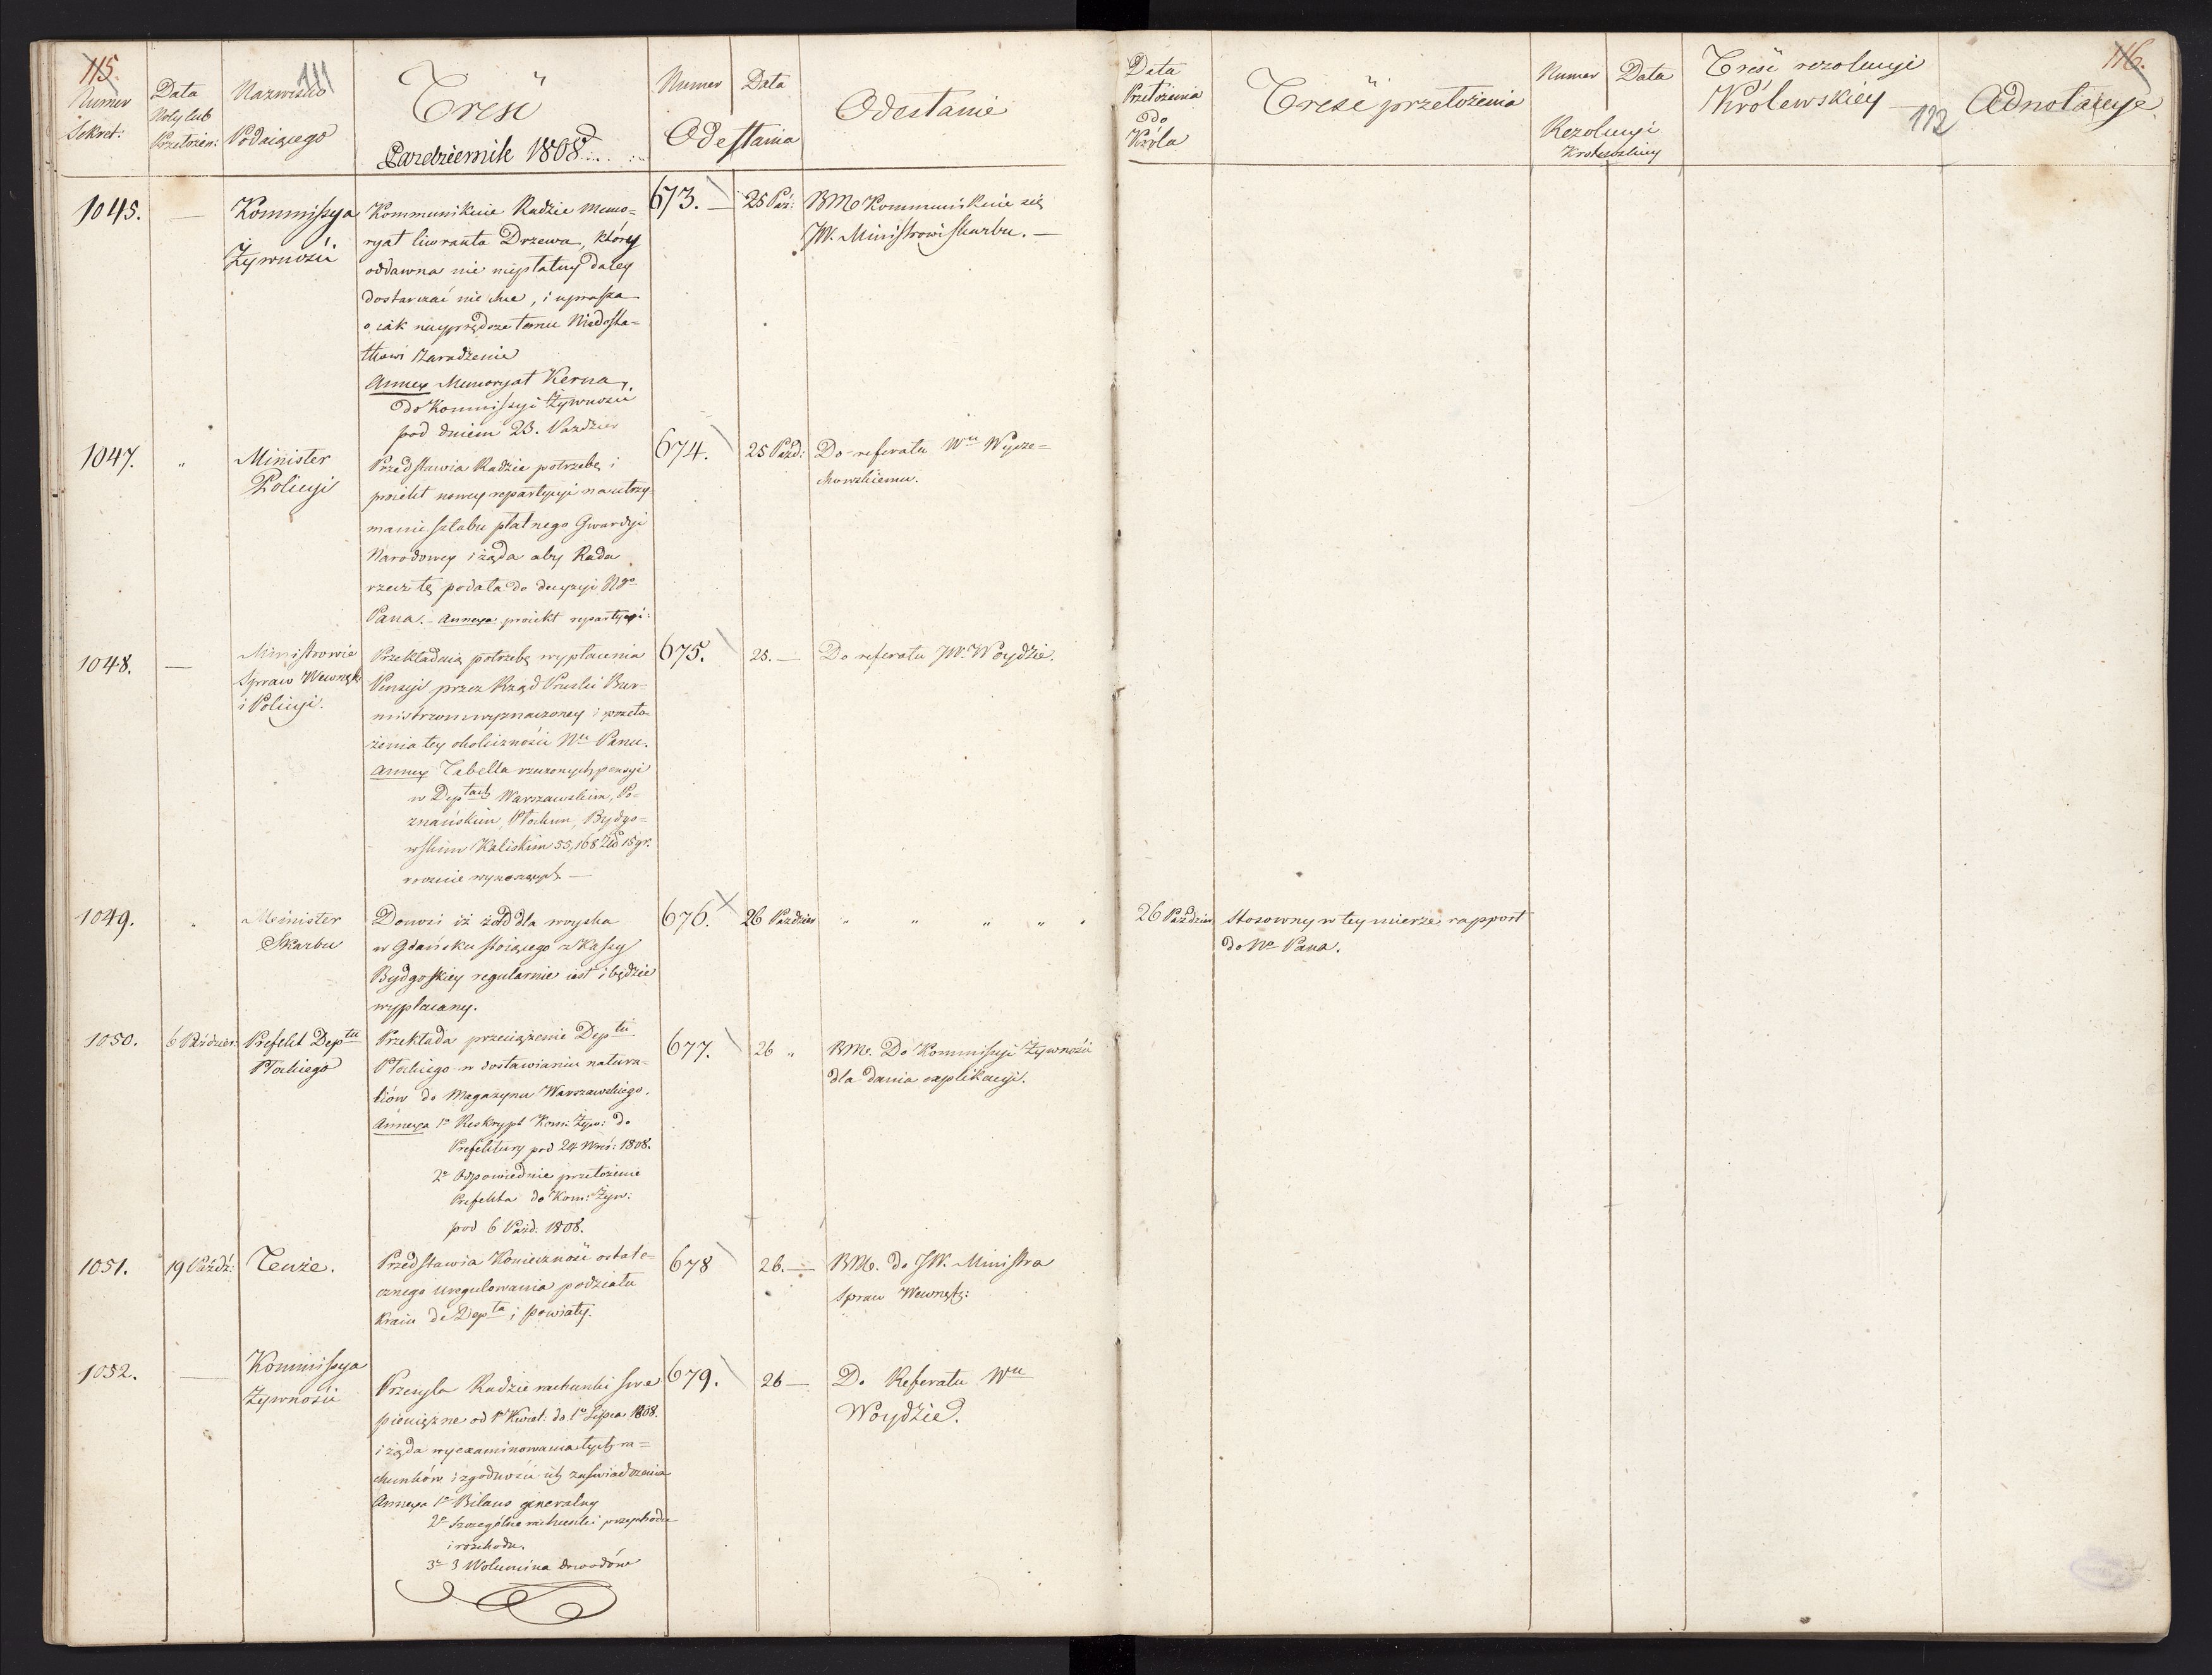 115.
111
Numer
Sekret:
Data
Noty lub
Przełożen:
Nazwisko
Podaiącego
Treść
Pazdziernik 1808
Numer
Data
Odesłania
Odesłanie
1045.
—
Kommissya
Żywności
Kommunikuie Radzie memo=
ryał liweranta Drzewa, który
oddawna nie
daley
dostarczać nie chce, i uprasza
o iak nayprędsze temu Niedosta=
tkowi zaradzenie
Annex Memoryał Kerna,
do Kommissyi Żywności
pod dniem 23. Pazdzier
673. —
25 Paź:
BM Kommunikuie się
JW. Ministrowi Skarbu. —
1047.
"
Minister
Policyi
Przedstawia Radzie potrzebę i
proiekt nowey repartycyi na utrzy=
manie sztabu płatnego Gwardyi
Narodowey i żąda aby Rada
rzecz tę podała do decyzyi Ngo
Pana. – Annexa proiekt repartycyi:
674.
25 Pażd:
Do referatu Wu Wycze=
chowskiemu.
1048.
—
Ministrowie
Spraw Wewnętr
i Policyi.
Przekładaią potrzebę wypłacenia
Pensyi przez Rząd Pruski Bur=
mistrzom wyznaczoney i przeło=
żenia tey okoliczności Nu Panu.
Annex Tabella rzeczonych pensyi
w Deptach Warszawskim, Po=
znańskim, Płockim, Bydgo=
wskim Kaliskim 55,168 Złł 15 gr.
rocznie wynoszących —
675.
25. —
Do referatu JW. Woydzie.
1049.
Minister
Skarbu
Donosi iż żołd dla woyska
w Gdańsku stoiącego z Kassy
Bydgoskiey regularnie iest i będzie
wypłacany.
676.
26 Pazdzier
" " " "
1050.
6 Paździer:
Prefekt Deptu
Płockiego
Przekłada przeciążenie Deptu
Płockiego w dostawianiu natura=
liów do Magazynu Warszawskiego.
Annexa 1o Reskrypt Kom: Żyw: do
Prefektury pod 24 Wrześ: 1808.
2o Odpowiednie przełożenie
Prefekta do Kom: Żyw:
pod 6 Paźd. 1808.
677.
26 "
BM. Do Kommissyi Żywności
dla dania explikacyi.
1051.
19 Paźdź:
Tenże.
Przedstawia Konieczność ostate=
cznego uregulowania podziału
Kraiu do Depta i powiaty.
678
26. —
BM. do JW. Ministra
Spraw Wewnętz:
1052.
—
Kommissya
Żywności
Przesyła Radzie rachunki swe
pieniężne od 1o Kwiet: do 1o Lipca 1808.
i żąda wyexaminowania tych ra=
chunków i zgodności ich zaświadczenia
Annexa 1o Bilans generalny
2o szczególne rachunki przychodu
i rozchodu.
3o 3 Wolumina dowodów
679.
26 —
Do Referatu Wu
Woydzie.
116.
112
Data
Przełożenia
do
Króla
Treść przełożenia
Numer
Data
Rezolucyi
Krolewskiey
Treść rezolucyi
Królewskiey
Adnotacye.
26 Paździer
Stosowny w tey mierze rapport
do No Pana.